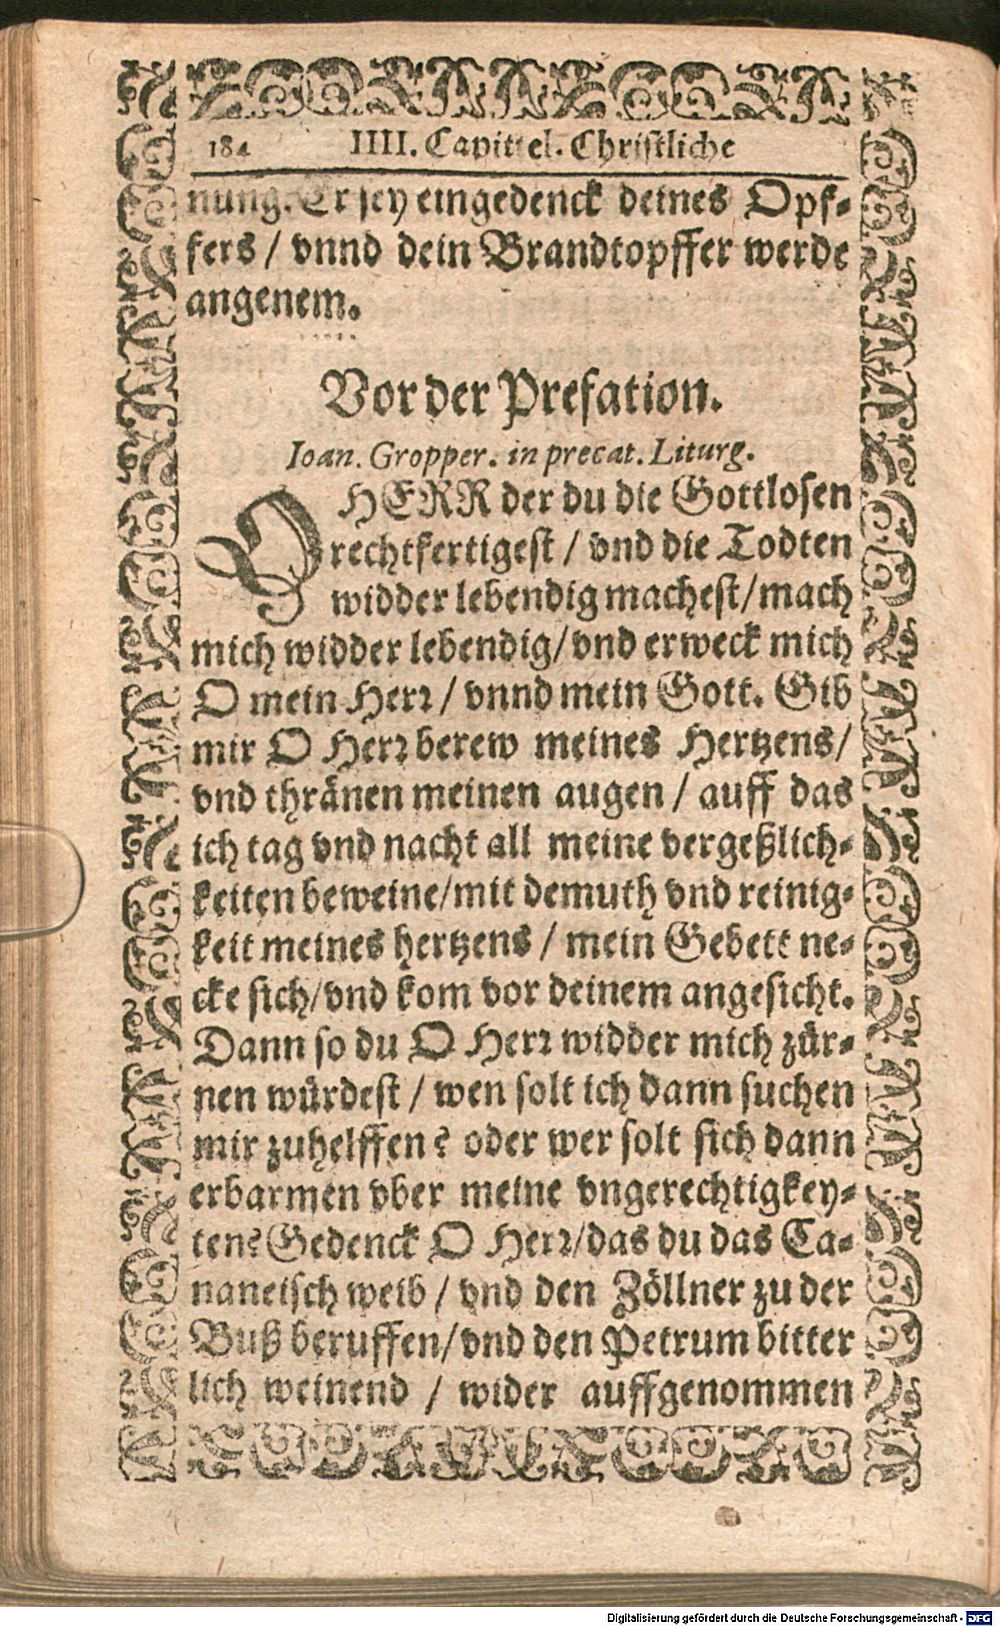 184 IIII. Capittel. Christliche
nung. Er sey eingedenck deines Opf-
fers / vnnd dein Brandtopffer werde
angenem.
Vor der Prefation.
Ioan. Gropper. in precat. Liturg.
O HERR der du die Gottlosen
rechtfertigest / vnd die Todten
widder lebendig machest / mach
mich widder lebendig / vnd erweck mich
O mein Herr / vnnd mein Gott. Gib
mir O Herr berew meines Hertzens /
vnd thränen meinen augen / auff das
ich tag vnd nacht all meine vergeßlich-
keiten beweine / mit demuth vnd reinig-
keit meines hertzens / mein Gebett ne-
cke sich / vnd kom vor deinem angesicht.
Dann so du O Herr widder mich zür-
nen würdest / wen solt ich dann suchen
mir zuhelffen? oder wer solt sich dann
erbarmen vber meine vngerechtigkey-
ten? Gedenck O Herr / das du das Ca-
naneisch weib / vnd den Zöllner zu der
Buß beruffen / vnd den Petrum bitter
lich weinend / wider auffgenommen
Digitalisierung gefördert durch die Deutsche Forschungsgemeinschaft - DFG